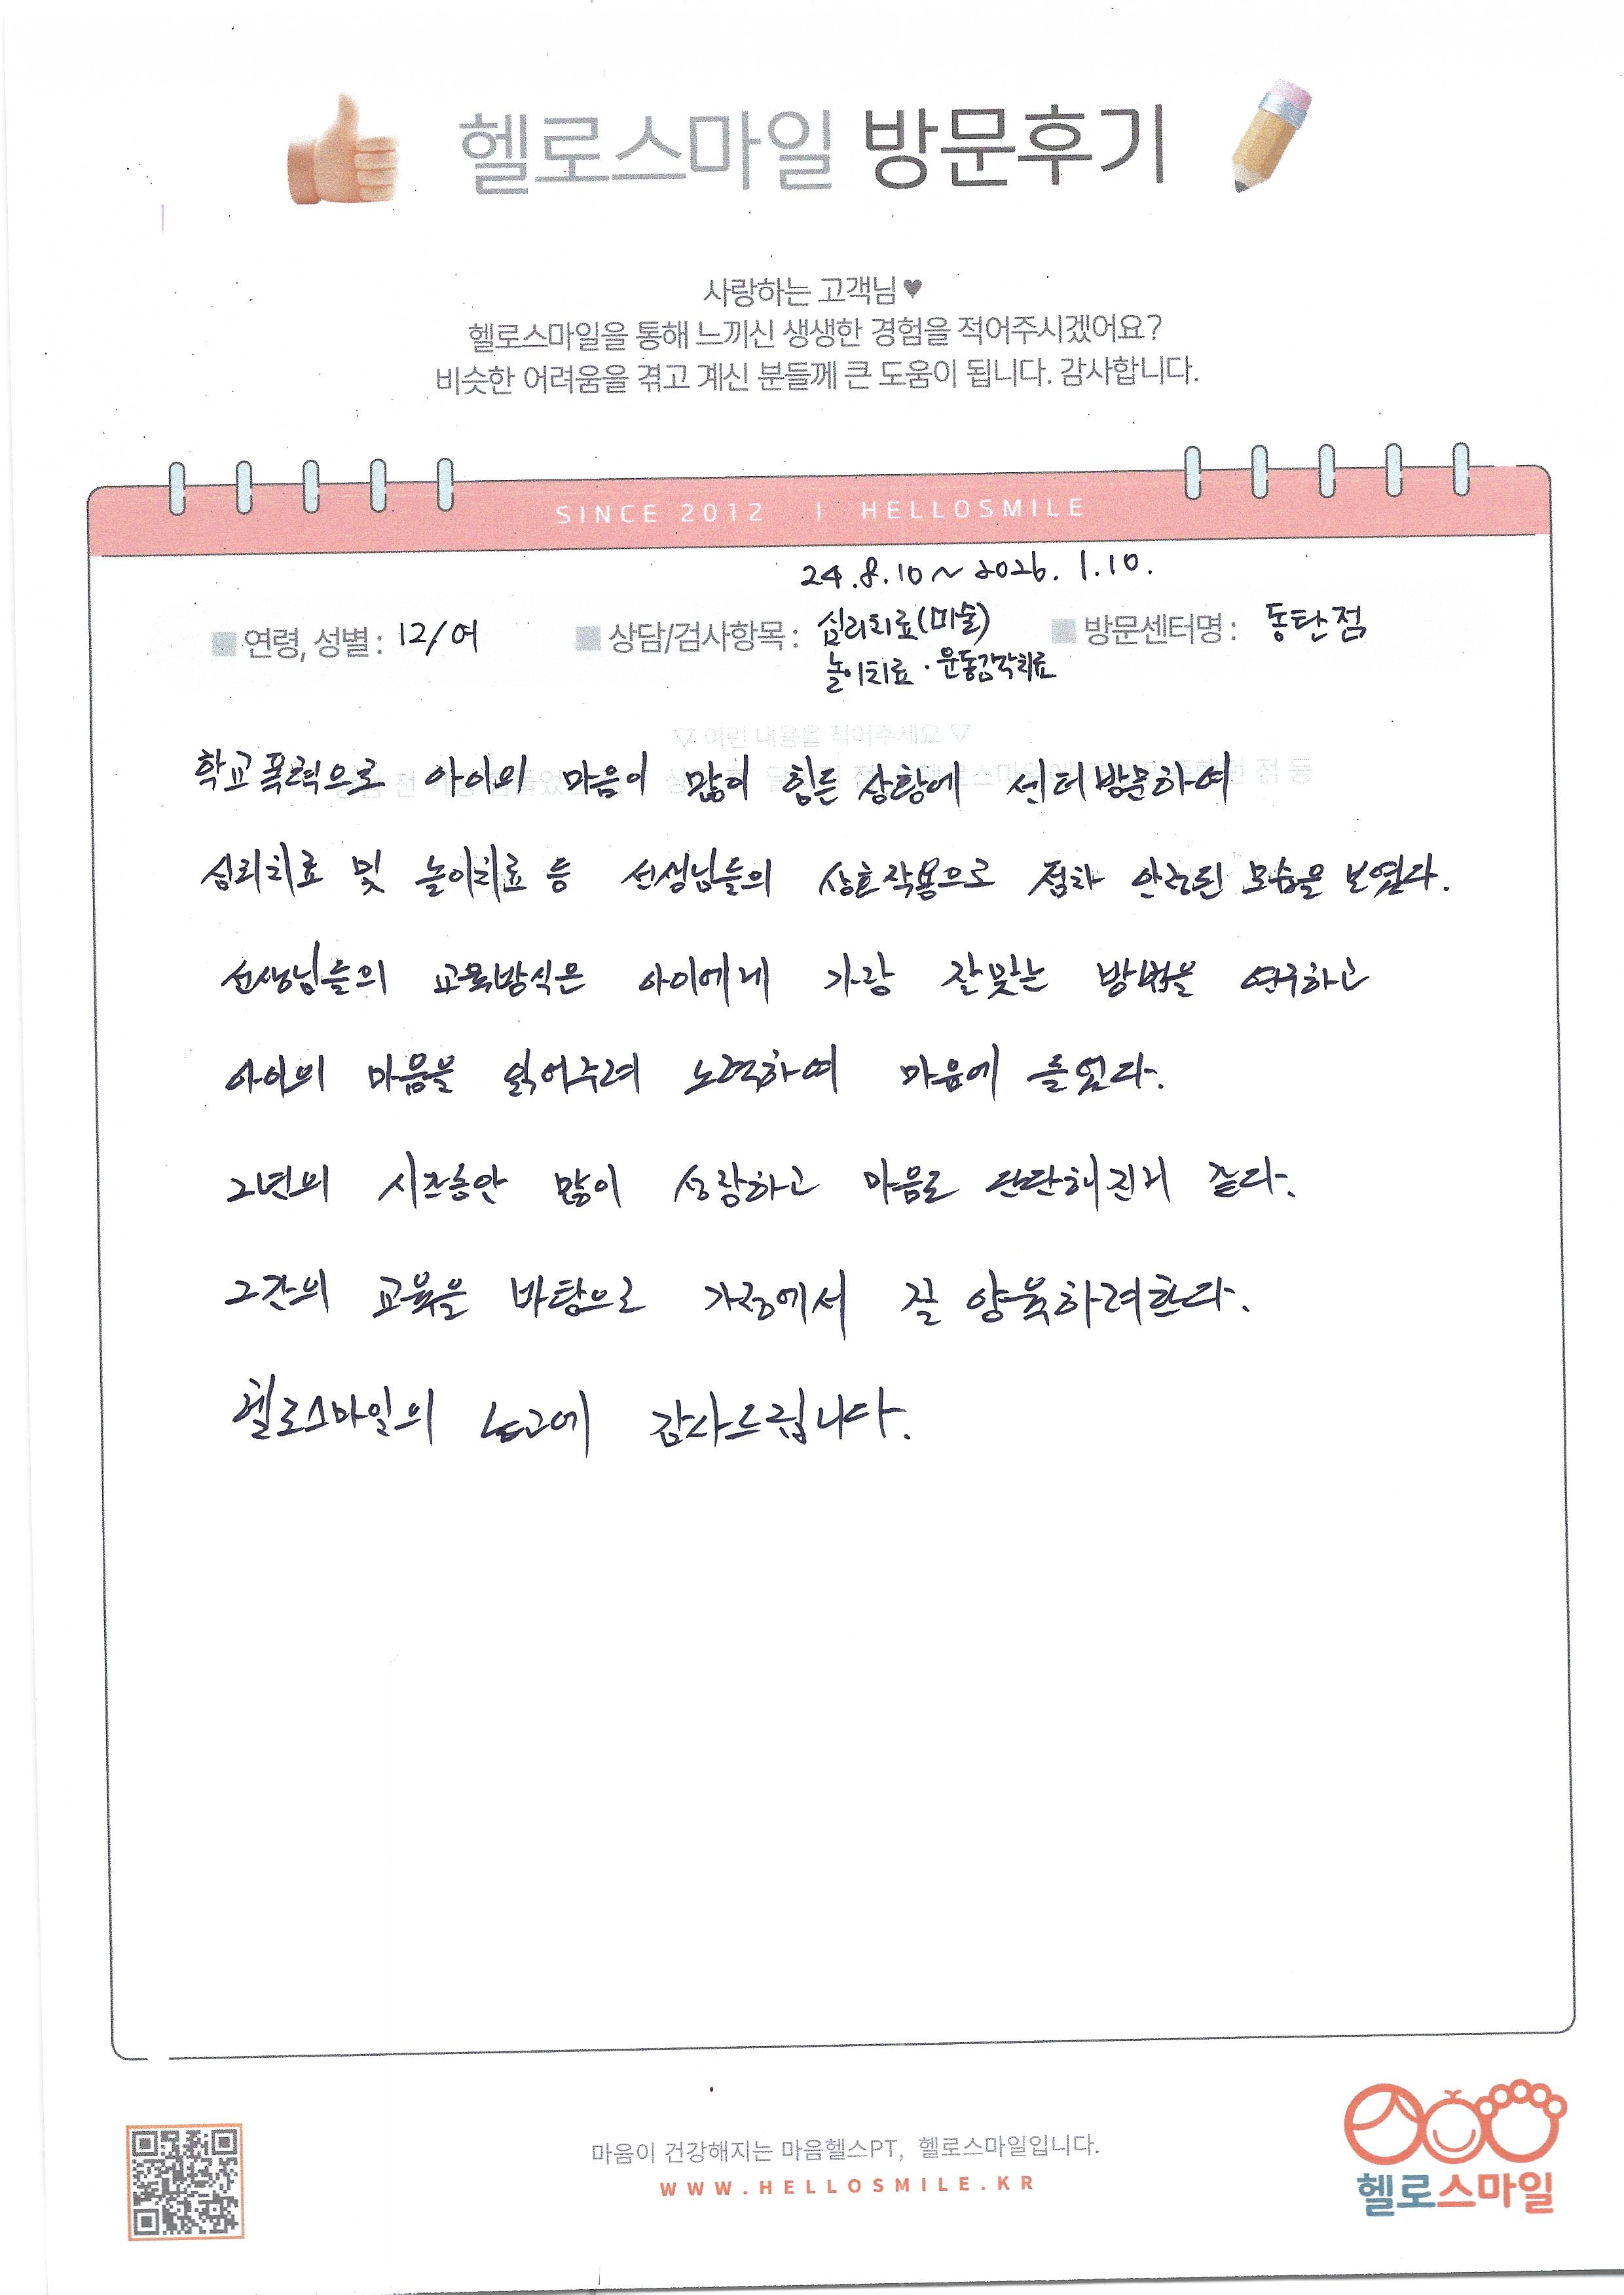 헬로스마일 방문후기
사랑하는 고객님♥
헬로스마일을 통해 느끼신 생생한 경험을 적어주시겠어요?
비슷한 어려움을 겪고 계신 분들께 큰 도움이 됩니다. 감사합니다.
SINCE 2012 | HELLOSMILE
24.8.10~2026.1.10.
■ 연령, 성별 : 12/여 ■ 상담/검사항목 : 심리치료(미술) ■ 방문센터명 : 동탄점
놀이치료 · 운동감각치료
▽ 이런 내용을 적어주세요 ▽
학교폭력으로 아이의 마음이 많이 힘든 상황에 센터방문하여
심리치료 및 놀이치료 등 선생님들의 상호작용으로 점차 안정된 모습을 보였다.
선생님들의 교육방식은 아이에게 가장 잘맞는 방법을 연구하고
아이의 마음을 읽어주려 노력하여 마음에 들었다.
2년의 시간동안 많이 성장하고 마음도 단단해진거 같다.
그간의 교육을 바탕으로 가정에서 잘 양육하려한다.
헬로스마일의 노고에 감사드립니다.
마음이 건강해지는 마음헬스PT, 헬로스마일입니다.
WWW.HELLOSMILE.KR
헬로스마일